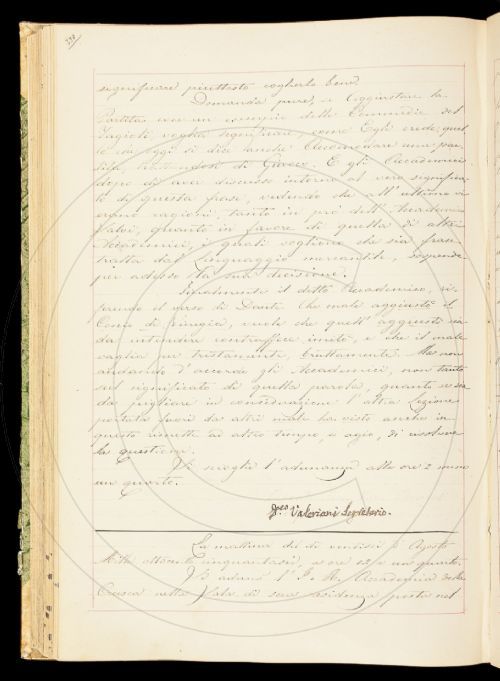 significare piuttosto coglierlo bene.
Domanda pure, se Aggiustare la
Partita con un esempio delle Commedie del
Fagiuoli voglia significare, come Egli crede, quel
lo che oggi si dice anche Accomodare una par
tita, trattandosi di Giuoco. E gli Accademici
dopo di aver discusso intorno al vero significa
to di questa frase, vedendo che all'ultimo vi
erano ragioni, tanto in pro dell'Accademico
Salvi, quanto in favore di quella di altri
Accademici, i quali vogliono che sia frase
tratta dal Linguaggio mercantile, sospende
per adesso la sua decisione.
Finalmente il detto Accademico, ri
ferendo il verso di Dante Che male aggiustò il
Conio di Vinegia, vuole che quell'aggiustò sia
da intendere contraffece imitò, e che il male
vaglia per tristamente, bruttamente. Ma non
andando d'accordo gli Accademici, non tanto
sul significato di quella parola, quanto se sia
da pigliare in considerazione l'altra Lezione
portata fuori da altri male ha visto anche in
questo rimette ad altro tempo e agio, di risolvere
la questione.
Si scioglie l'adunanza alle ore 2 meno
un quarto.
Valeriani Segretario.
La mattina del dì ventisei Agosto
Mille ottocento cinquantasei, a ore 12 e un quarto.
Si aduna l'I. e R. Accademia della
Crusca nella Sala di sua residenza posta nel